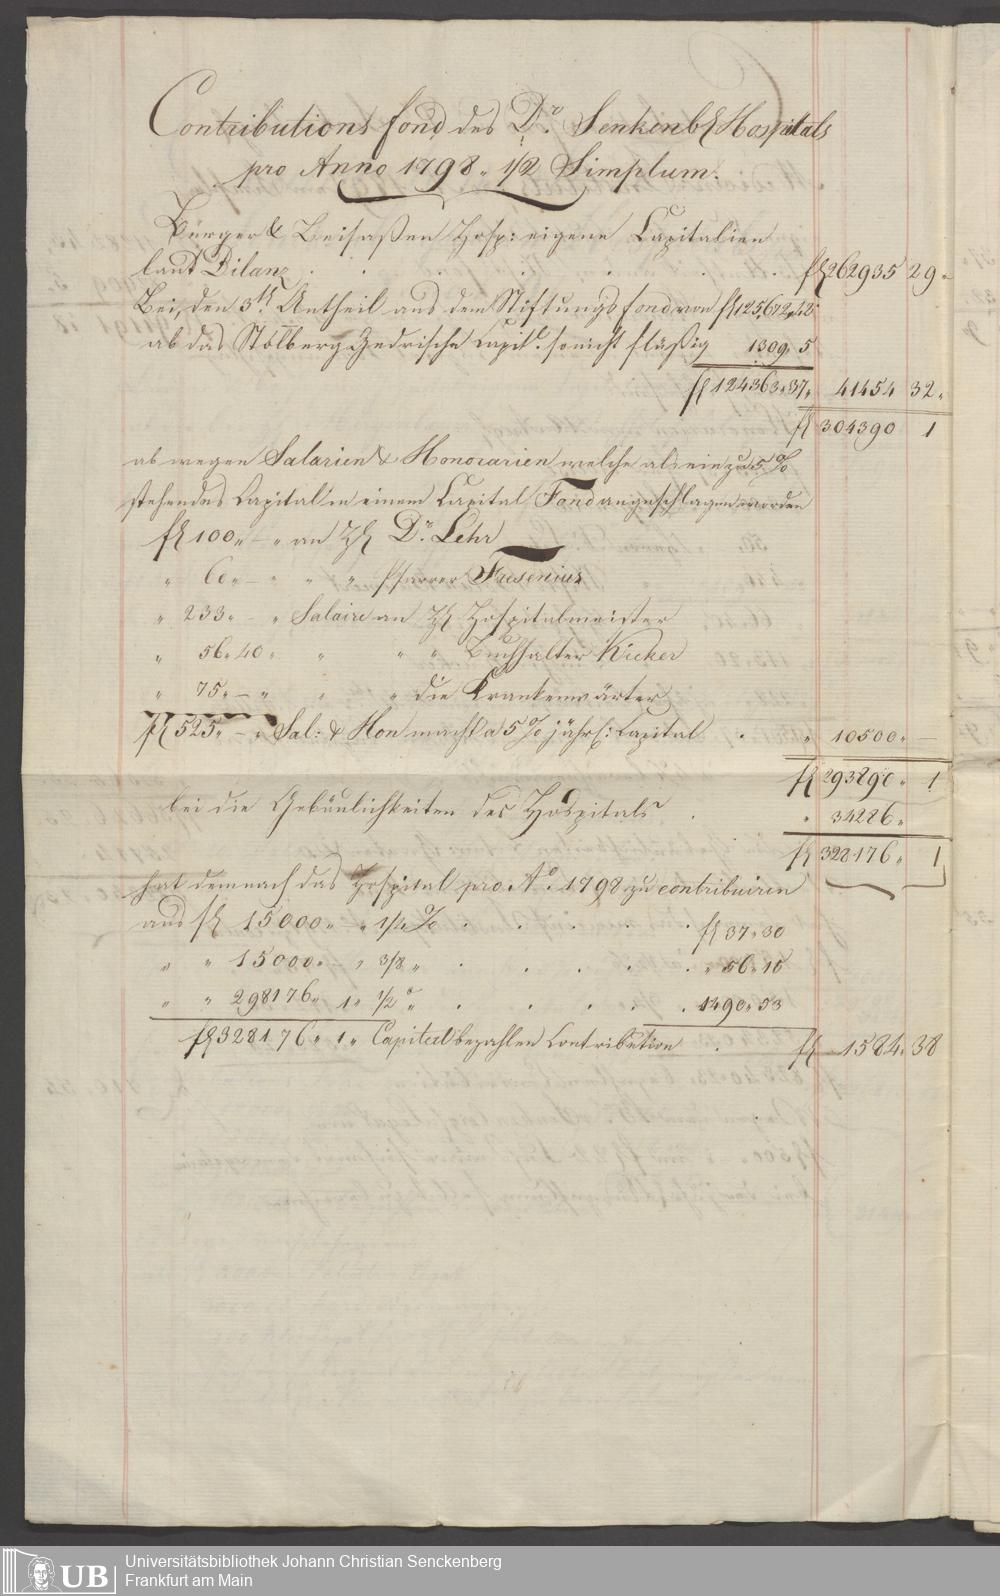 Contributions fond des Dr. Senkenb. Hospitals
pro Anno 1798. 1/2 Simplum.
Bürger & Beisaßen Hosp: eigene Capitalien
laut Bilanz . . . . . . fl 262935 29 "
Bei, den 3t. Antheil aus dem Stiftungs fond von fl 125,672, 42
ab das Stolberg Gedrische Capit. so nicht fläßig 1309. 5
fl 124363. 37. 41454 32 "
fl 304390 1
ab wegen Salarien & Honorarien welche als ein zu 5 %
stehendes Capital in einem Capital Fond angeschlagen worden
fl 100 " — " an H Dr. Lehr
" 60 " — " " " Pfarrer Fresenius
" 233 " — " Salaire an H Hospitalmeister
" 56 " 40 " " " " Buchhalter Kicker
" 75 " — " " " die Krankenwärter
fl 525 " — " Sal: & Hon macht a 5 % jährl: Capital . " 10500 " —
fl 293890 " 1
bei die Gebäulichkeiten des Hospitals . " 34286 "
fl 328176 " 1
hat demnach das Hospital pro Ao. 1798 zu contribuiren
aus fl 15000 " — " 1/4 % . . . . . fl 37 " 30
" " 15000 " — " 3/8 " . . . . . " 56 " 15
" " 298176 " 1 " 1/2 " . . . . . 1490 " 53
fl 328176 " 1 " Capital bezahlen Contribution . fl 1584 " 38
UB
Universitätsbibliothek Johann Christian Senckenberg
Frankfurt am Main